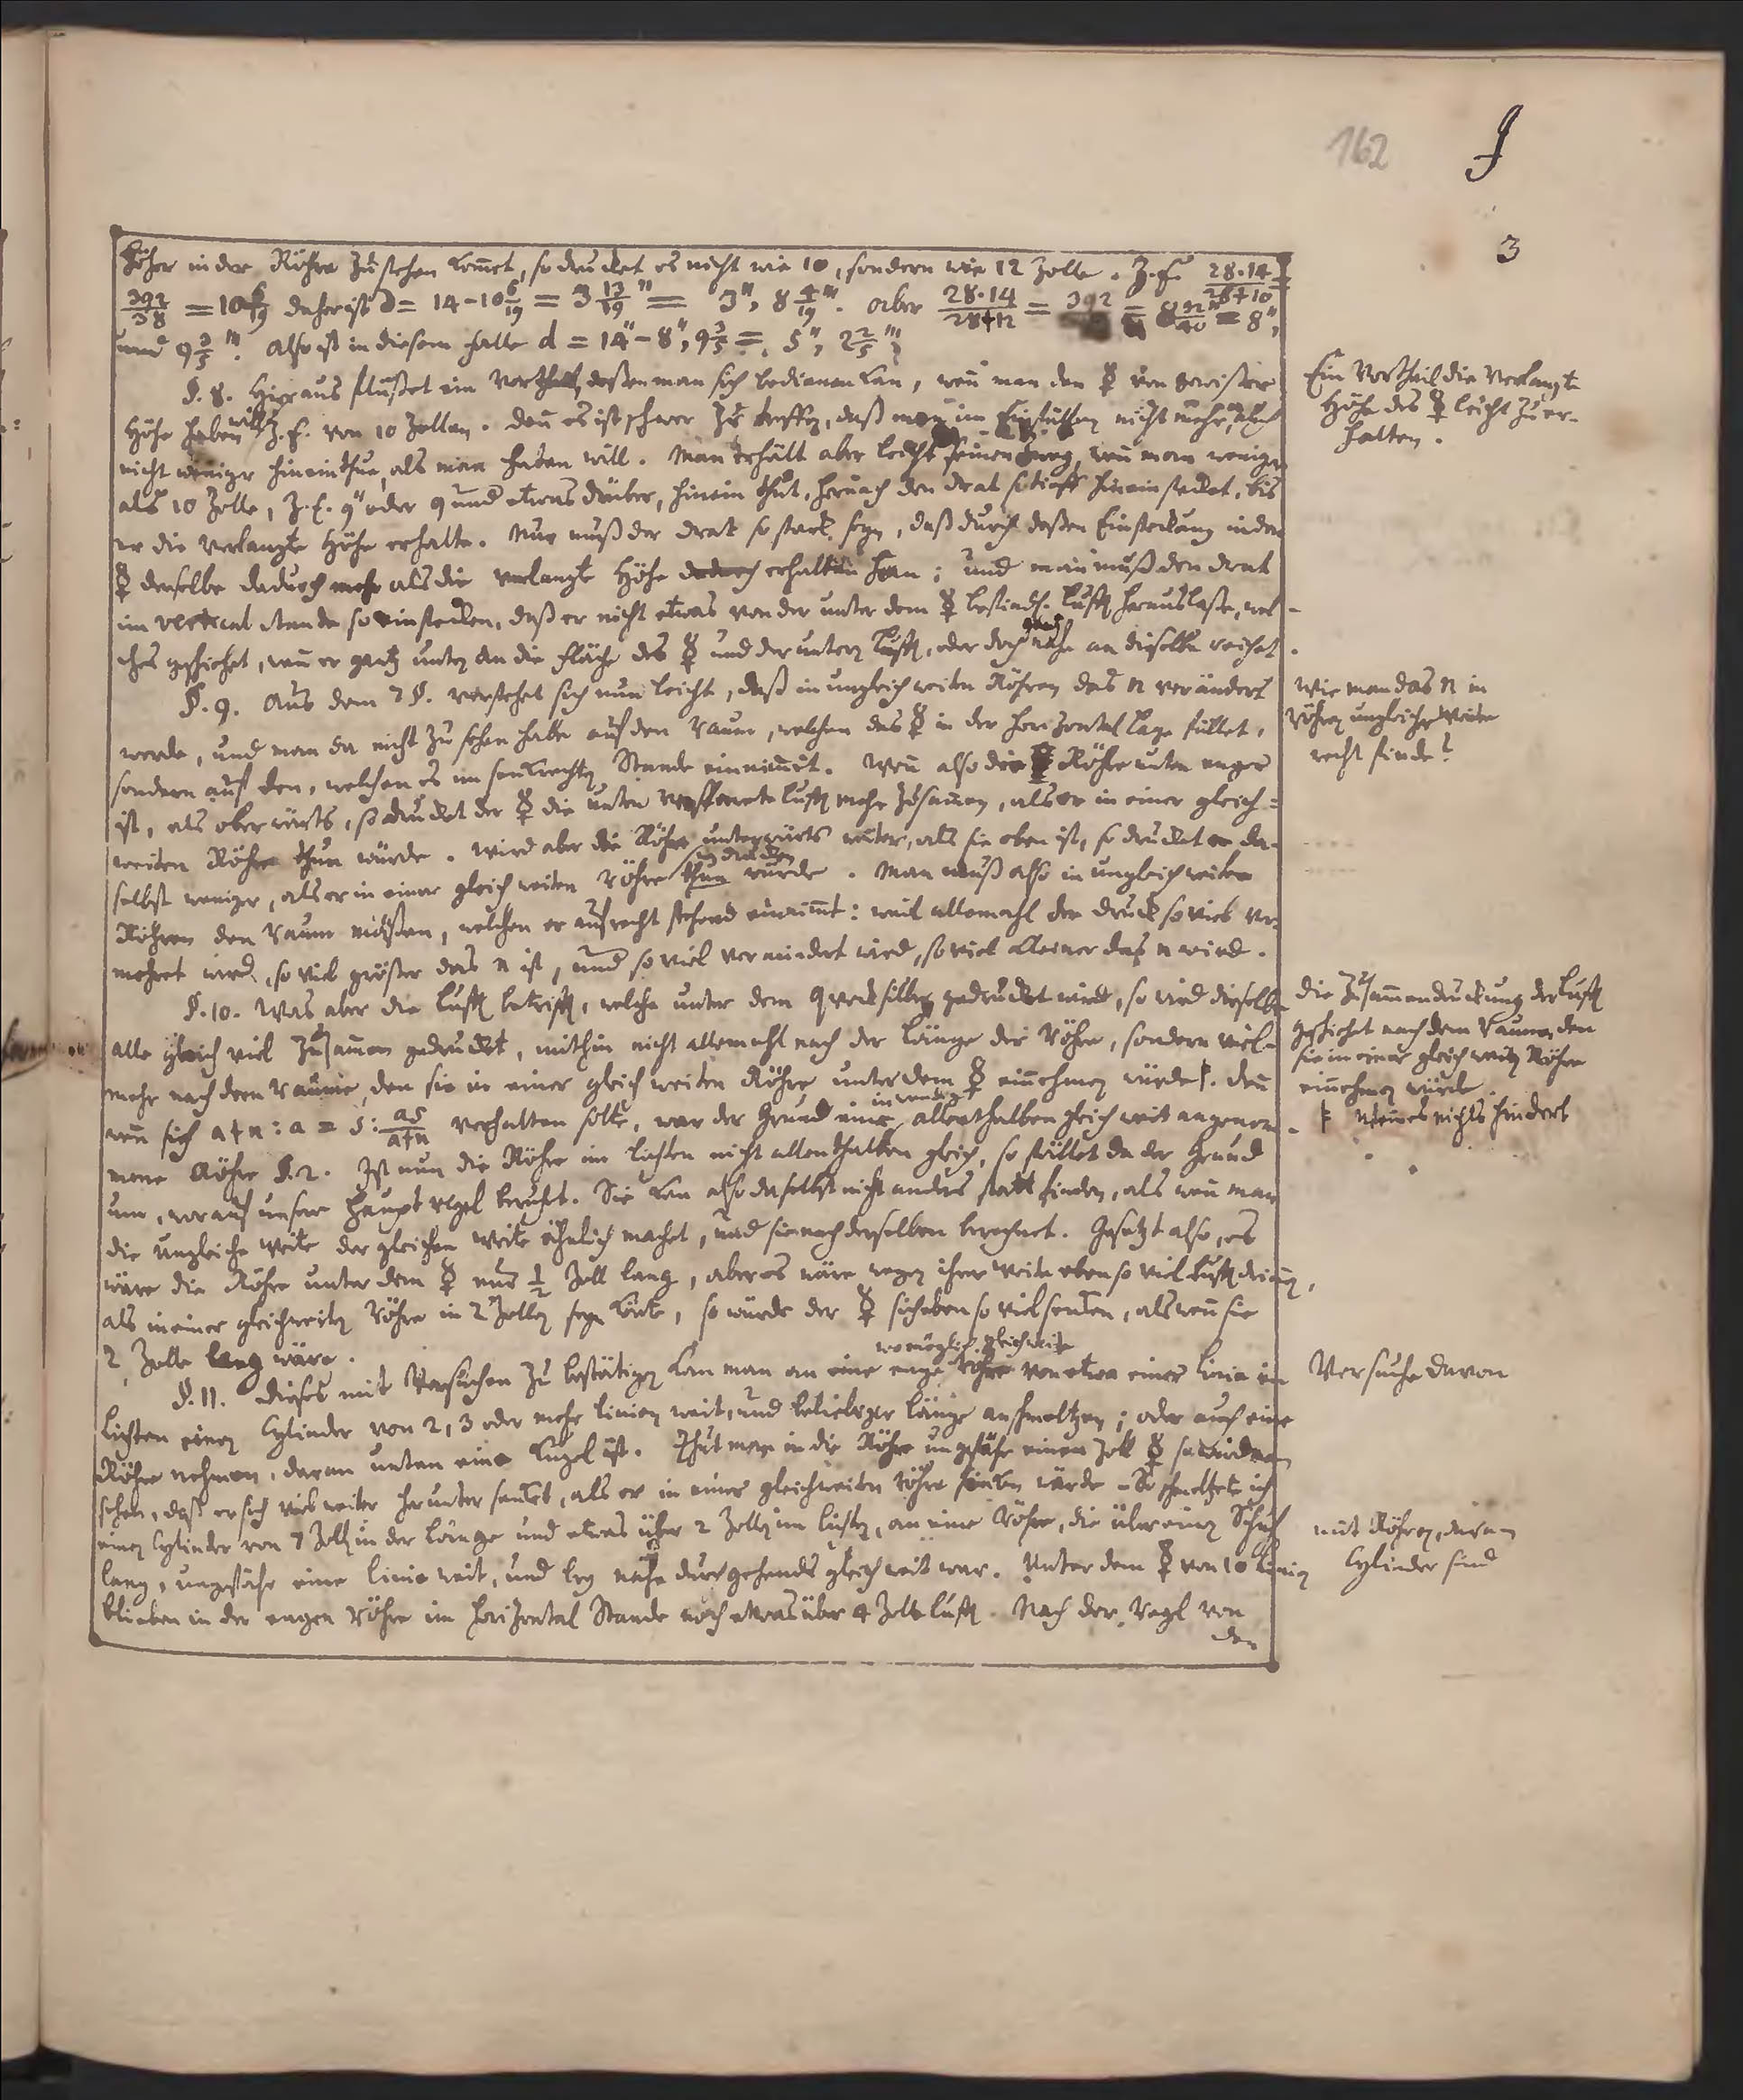 162
3
höher in der Röhre zu stehen kom̅et, so drucket es nicht wie 10, sondern wie 12 Zolle. Z. E. 28·14/28+10 =
392/38 = 10 6/19 daher ist d = 14 - 10 6/19 = 3 13/19" = 3", 8 4/19"'. Aber 28·14/28+12 = 392/40 = 9 32/40" = 8",
und 9 3/5"'. Also ist in diesem falle d = 14" - 8", 9 3/5 = 5", 2 2/5"'
§. 8. Hieraus flüßet ein Vortheil, deßen man sich bedienen kan, wen̅ man den ☿ von gewißer
Höhe haben will Z. E. von 10 Zollen. Den̅ es ist schwer zu treffen, daß man im Einfüllen nicht mehr, auch
nicht weniger hineinthue, als man haben will. Man erhält aber leicht seinen Zweg, wen̅ man weniger
als 10 Zolle, Z. E. 9" oder 9 und etwas drüber, hinein thut, hernach den Drat so tieff hinein stecket, bis
er die verlangte Höhe erhalte. Nur muß der Drat so stark seyn, daß durch deßen Einsteckung in den
☿ derselbe dadurch mehr als die verlangte Höhe erhalten kan; und man muß den Drat
im vertical stande so einstecken, daß er nicht etwas von der unter dem ☿ befindl. Lufft herauslaße, wel-
ches geschiehet, wen̅ er gantz unten an die fläche des ☿ und der untern Lufft, oder doch gantz nahe an dieselbe reichet.
§. 9. Aus dem 2 §. verstehet sich nun leicht, daß in ungleich weiten Röhren das n verändert
werde, und man da nicht zu sehen habe auf den Raum, welchen das ☿ in der horizontal Lage füllet,
sondern auf den, welchen es im senkrechten Stande einnim̅t. Wen̅ also die Röhre unten enger
ist, als oberwärts, so drucket der ☿ die unten versperrete Lufft mehr zusam̅en, als er in einer gleich-
weiten Röhre thun würde. Wird aber die Röhre unterwärts weiter, als sie oben ist, so drucket er da-
selbst weniger, als er in einer gleich weiten Röhre thun würde. Man muß also in ungleich weiten
Röhren den Raum meßen, welchen er aufrecht stehend einnim̅t: weil allemahl der Druck so viel ver-
mehret wird, so viel größer das n ist, und so viel vermindert wird, so viel kleiner das n wird.
§. 10. Was aber die Lufft betrifft, welche unter dem Quecksilber gedrucket wird, so wird dieselbe
alle gleich viel zusam̅en gedruckt, mithin nicht allemahl nach der Länge der Röhre, sondern viel-
mehr nach dem Raume, den sie in einer gleich weiten Röhre unter dem ☿ einnehmen würde. Den̅
wen̅ sich a+n : a = s : as/a+n verhalten solte, war der Grund eine inwendig allenthalben gleich weit angenom-
mene Röhre §. 2. Ist nun die Röhre im Lichten nicht allenthalben gleich, so fället da der Grund
um, worauf unsere Hauptregel beruhet. Sie kan also daselbst nicht anders statt finden, als wen̅ man
die ungleiche Weite der gleichen Weite ähnlich machet, und sie nach derselben berechnet. Gesetzt also, es
wäre die Röhre unter dem ☿ nur 1/2 Zoll lang, aber es wäre wegen ihrer Weite eben so viel Lufft drin̅en,
als in einer gleichweiten Röhre in 2 Zollen seyn könte, so würde der ☿ sich eben so viel senken, als wen̅ sie
2 Zolle lang wäre.
§. 11. Dieses mit Versuchen zu bestätigen kan man an eine enge womöglich gleichweite Röhre von etwa einer Linie im
Lichten einen Cylinder von 2, 3 oder mehr Linien weit, und beliebiger Länge anschmeltzen; oder auch eine
Röhre nehmen, daran unten eine Kugel ist. Thut man in die Röhre ungefähr einen Zoll ☿ so wird man
sehen, daß er sich viel weiter herunter senket, als er in einer gleichweiten Röhre sinken würde. So schmeltzete ich
einen Cylinder von 7 Zoll in der Länge und etwas über 2 Zoll im Lichten, an eine Röhre, die über einen Schuh
lang, ungefähr eine Linie weit, und bey nahe durchgehends gleich weit war. Unter dem ☿ von 10 Linien
blieben in der engen Röhre im horizontal Stande noch etwas über 4 Zolle Lufft. Nach der Regel von
den
Ein Vortheil die verlangte
Höhe des ☿ leicht zu er-
halten.
Wie man das n in
Röhren ungleicher Weite
recht finde?
Die Zusammendruckung der Lufft
geschiehet nach dem Raume, den
sie in einer gleich weiten Röhre
einnehmen würde.
nichts hindert
Versuche davon
mit Röhren, daran
Cylinder sind